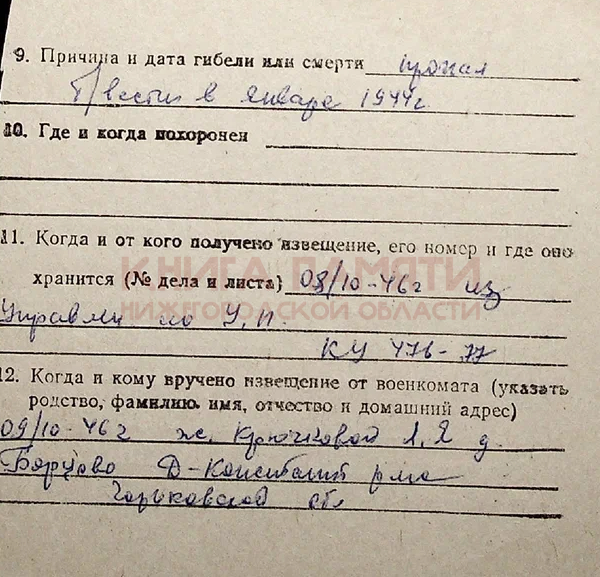 9. Причина и дата гибели или смерти пропал
б/вести в январе 1944г
10. Где и когда похоронен
11. Когда и от кого получено извещение, его номер и где оно
хранится (№ дела и листа) 08/10-46г из
КНИГА ПАМЯТИ
НИЖЕГОРОДСКОЙ ОБЛАСТИ
по У.П.
КУ 476-77
12. Когда и кому вручено извещение от военкомата (указать
родство, фамилию, имя, отчество и домашний адрес)
09/10-46г ж. Крючковой д.
Д-Константин р-на
Горьковской обл